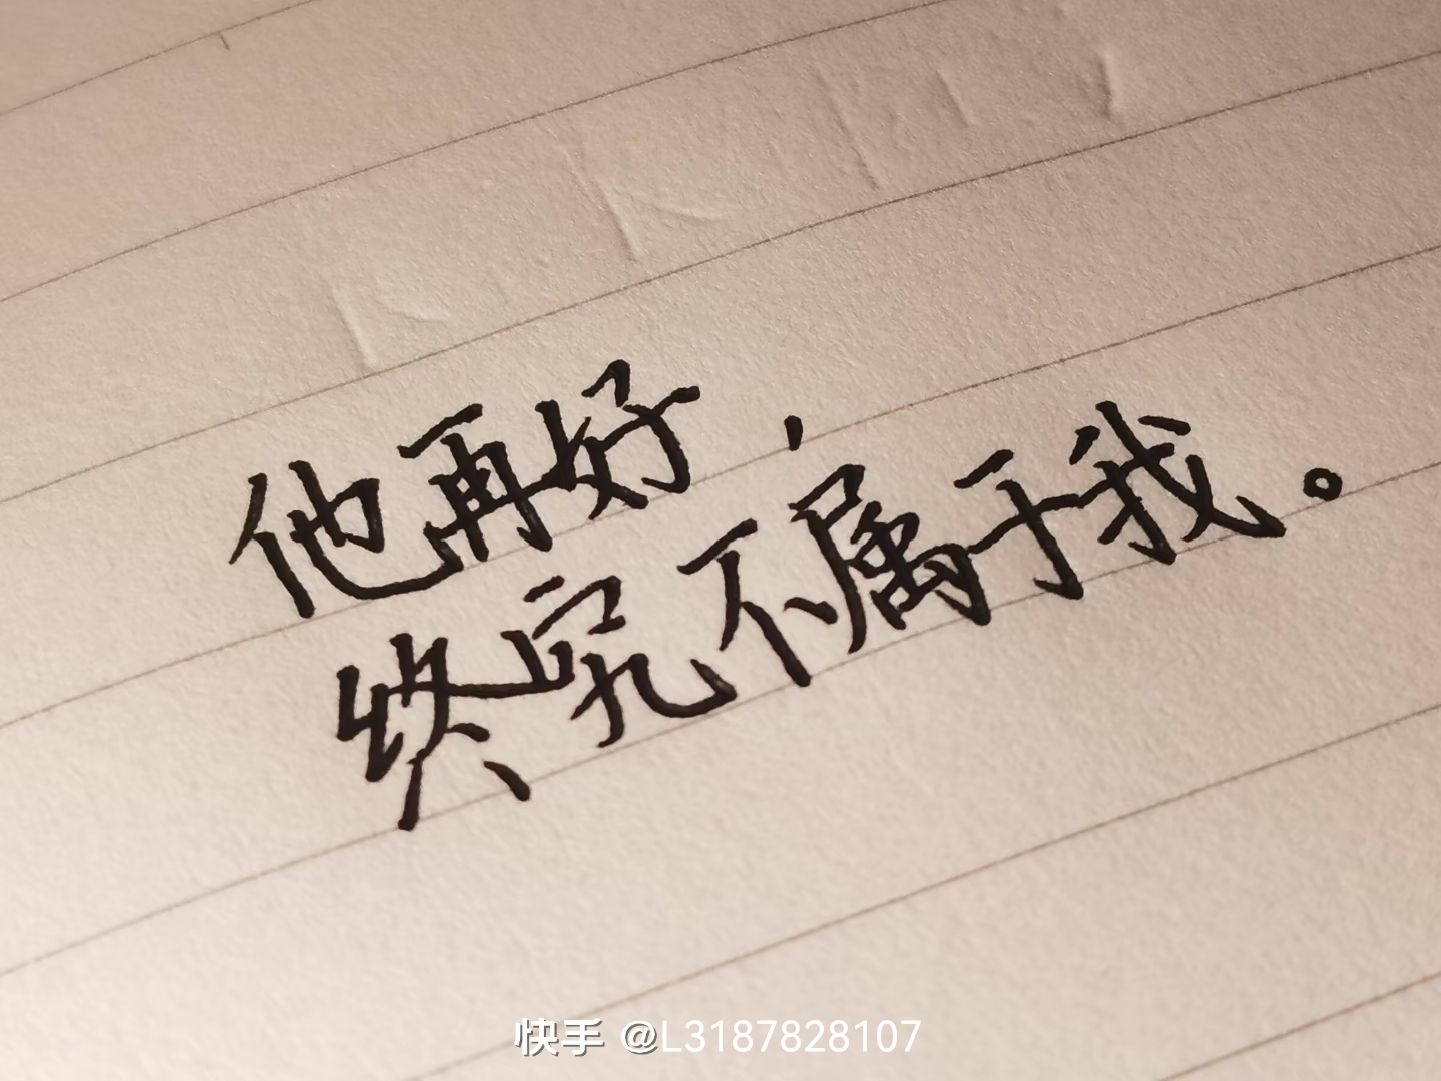 他再好，
终究不属于我。
快手 @L3187828107